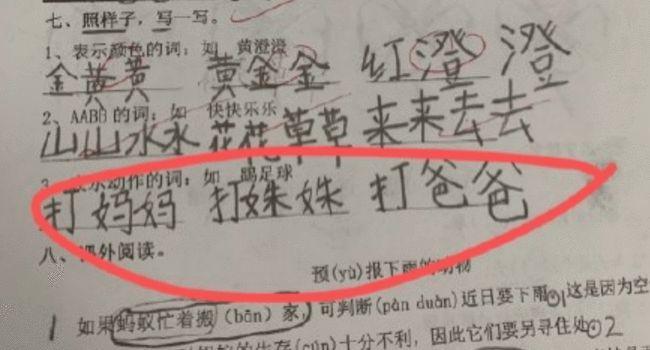 七、照样子，写一写。
1、表示颜色的词：如 黄澄澄
金黄黄 黄金金 红澄澄
2、AABB的词：如 快快乐乐
山山水水 花花草草 来来去去
3、表示动作的词：如 踢足球
打妈妈 打妹妹 打爸爸
八、课外阅读。
预(yù)报下雨的动物
1 如果蚂蚁忙着搬(bān)家，可判断(pàn duàn)近日要下雨①这是因为空
十分不利，因此它们要另寻住处②2